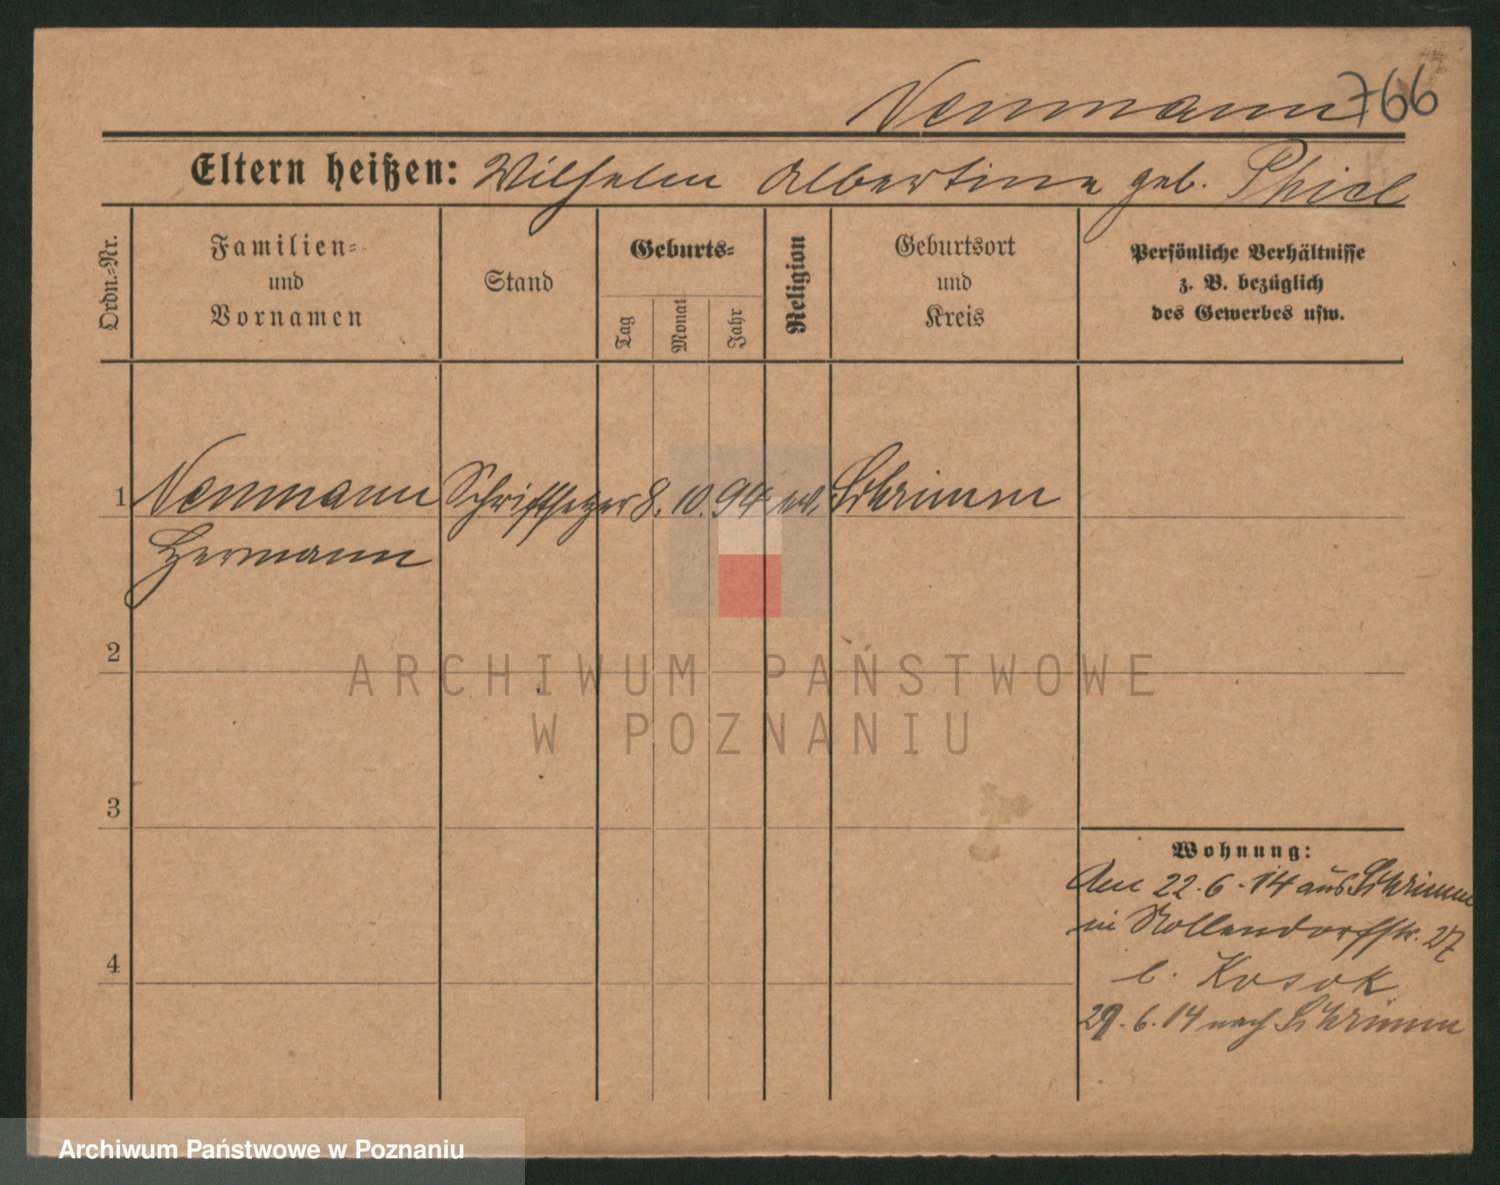 Neumann 766
Eltern heißen: Wilhelm Albertine geb. Thiel
Ordn.-Nr.
Familien-
und
Vornamen
Stand
Geburts-
Tag
Monat
Jahr
Religion
Geburtsort
und
Kreis
Persönliche Verhältnisse
z. B. bezüglich
des Gewerbes usw.
1 Neumann Schriftsetzer 8. 10. 94 ev. Schrimm
Hermann
2
ARCHIWUM PAŃSTWOWE
W POZNANIU
3
Wohnung:
Am 22.6.14 aus Schrimm
in Nollendorfstr. 27
4
b. Kosok
29.6.14 nach Schrimm
Archiwum Państwowe w Poznaniu